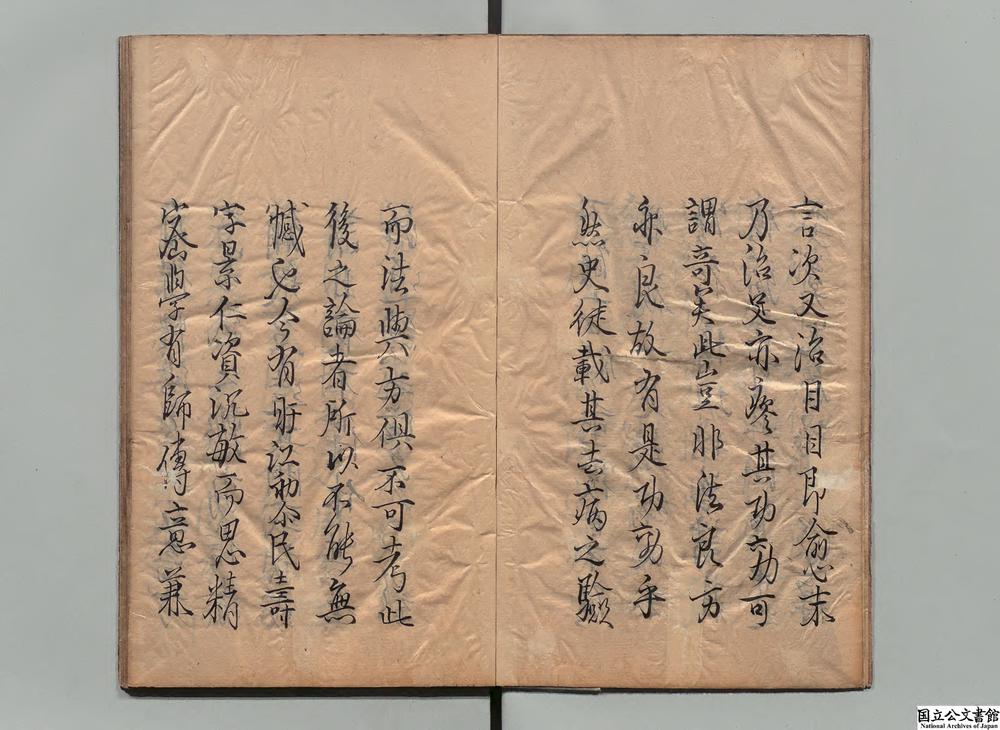 言次又治目目即愈末
乃治足亦瘳其功効可
謂奇矣此豈非法良方
亦良故有是功効乎
然史徒載其去病之驗
而法與方俱不可考此
後之論者所以不能無
憾也今有盱江民壽
字景仁資沉敏而思精
密學有師傳意兼
国立公文書館
National Archives of Japan